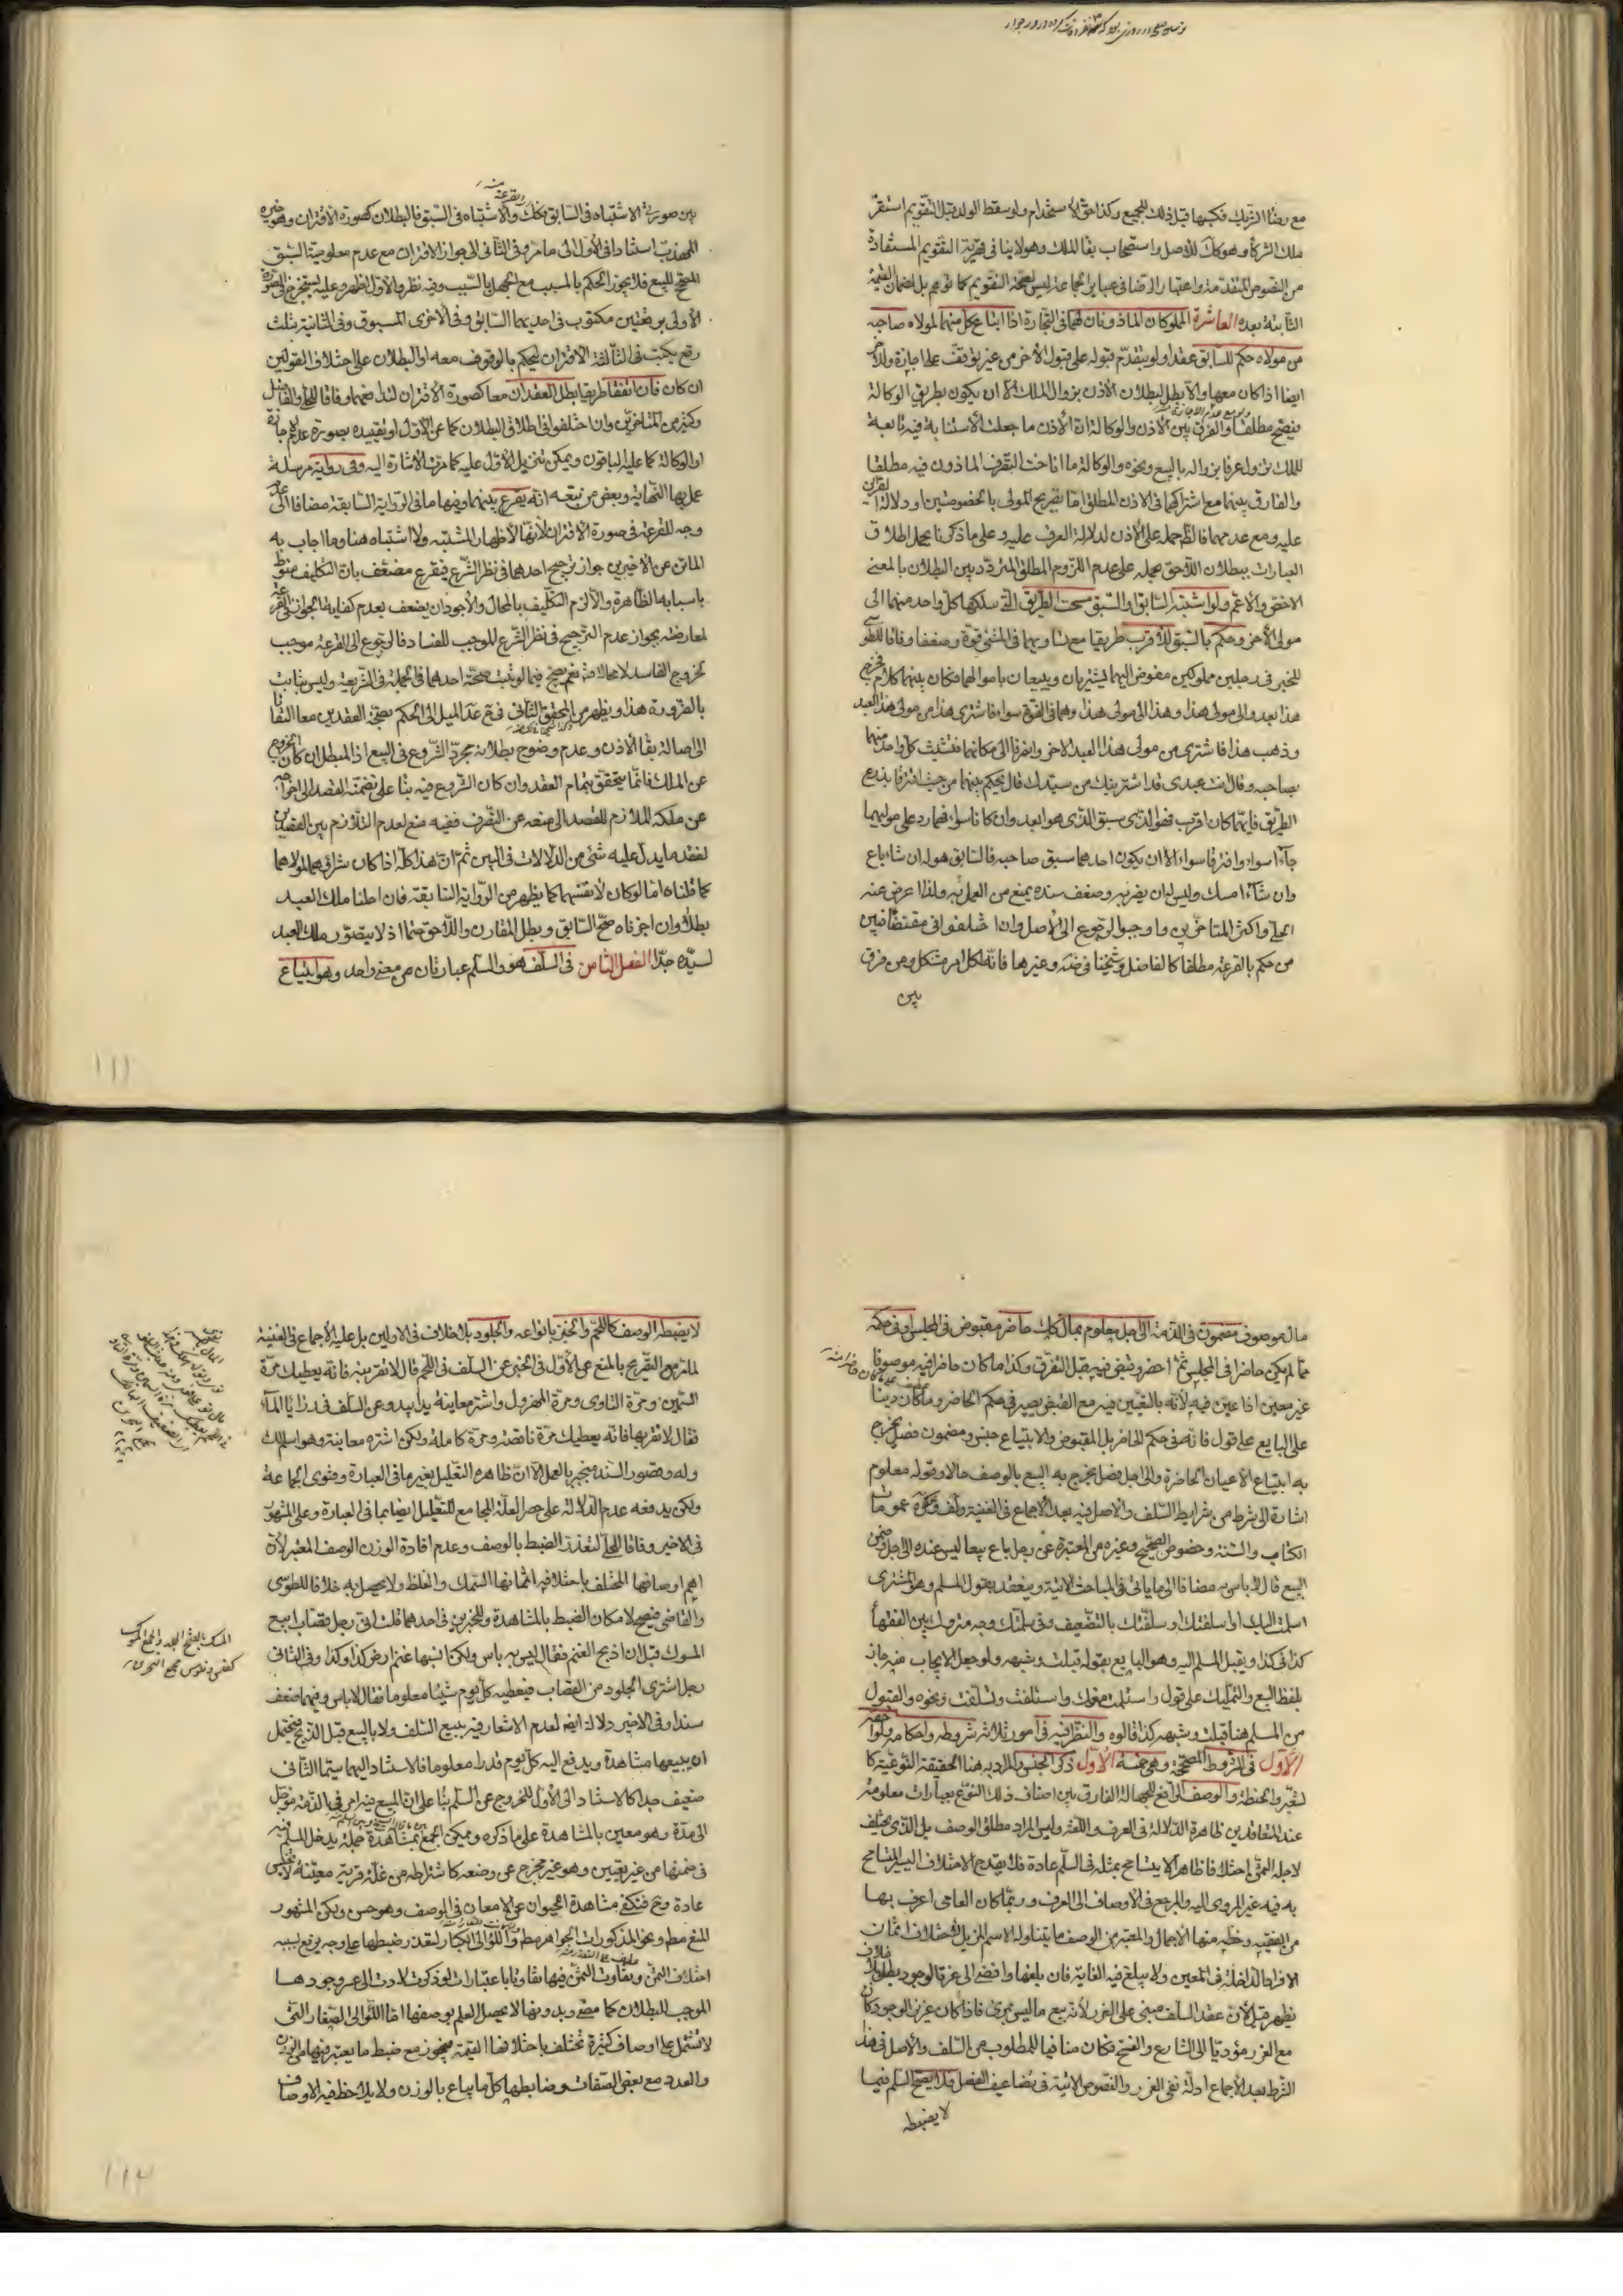 مع رضا الشريك فكسبها قبل ذلك للجميع وكذا حق الاستخدام ولو سقط الولد قبل التقويم استقر
ملك الشركاء وهو كك للاصل واستصحاب بقاء الملك وهو لا ينافي قهرية التقويم المستفادة
من النصوص المتقدمة واعتبار الرضا في عباير الجماعة ليس لصحة التقويم كما توهم بل لضمان القيمة
الثابتة بعده العاشرة المملوكان الماذونان لهما في التجارة اذا ابتاع كل منهما لمولاه صاحبه
من مولاه حكم للسابق عقدا ولو بتقدم قبوله على قبول الاخر من غير توقف على اجازة وللاخر
ايضا اذا كان معها والا بطل لبطلان الاذن بزوال الملك الا ان يكون بطريق الوكالة
فيصح مطلقا والفرق بين الاذن والوكالة ان الاذن ما جعلت الاستنابة فيه تابعة
للملك تزول عرفا بزواله بالبيع ونحوه والوكالة ما اباحت التصرف الماذون فيه مطلقا
والفارق بينهما مع اشتراكهما في الاذن المطلق اما تصريح المولى بالخصوصيتين او دلالة القراين
عليه ومع عدمهما فالظ حمله على الاذن لدلالة العرف عليه وعلى ما ذكرنا يحمل اطلاق
العبارات ببطلان اللاحق بحمله على عدم اللزوم المطلق المتردد بين البطلان بالمعنى
الاخص والاعم ولو اشتبه السابق او السبق مسحت الطريق التي سلكها كل واحد منهما الى
مولى الاخر وحكم بالسبق للاقرب طريقا مع تساويهما في المشي قوة وضعفا وفاقا للطوسي
للخبر في رجلين مملوكين مفوض اليهما يشتريان ويبيعان باموالهما فكان بينهما كلام فخرج
هذا يعدو الى مولى هذا وهذا الى مولى هذا وهما في القوة سواء فاشترى هذا من مولى هذا العبد
وذهب هذا فاشترى من مولى هذا العبد الاخر وانصرفا الى مكانهما فتشبث كل واحد منهما
بصاحبه وقال انت عبدي قد اشتريتك من سيدك قال يحكم بينهما من حيث افترقا يذرع
الطريق فايهما كان اقرب فهو الذي سبق الذي هو ابعد وان كانا سواء فهما رد على مواليهما
جاءا سواء وافترقا سواء الا ان يكون احدهما سبق صاحبه فالسابق هو له ان شاء باع
وان شاء امسك وليس له ان يضر به وضعف سنده يمنع من العمل به ولذا اعرض عنه
الحلي واكثر المتاخرين واوجبوا الرجوع الى الاصل وان اختلفوا في مقتضاه فبين
من حكم بالقرعة مطلقا كالفاضل وشيخنا في ضه وغيرها فانه لكل امر مشكل ومن فرق
بين
بين صورتي الاشتباه في السابق فكك والاشتباه في السبق فالبطلان كصورة الاقتران وهو خيرة
المهذب استنادا في الاول الى ما مر وفي الثاني الى جواز الاقتران مع عدم معلومية السبق
المصحح للبيع فلا يجوز الحكم بالمسبب مع الجهل بالسبب وفيه نظر والاول اظهر وعليه يستخرج في الصورة
الاولى برقعتين مكتوب في احديهما السابق وفي الاخرى المسبوق وفي الثانية بثلث
رقع يكتب في الثالثة الاقتران ليحكم بالوقوف معه او البطلان على اختلاف القولين
ان كان فان اتفقا طريقا بطل العقدان معا كصورة الاقتران لتدافعهما وفاقا للحلي والفاضل
وكثير من المتاخرين وان اختلفوا في اطلاق البطلان كما عن الاول او تقييده بصورة عدم الاجازة
او الوكالة كما عليه الباقون ويمكن تنزيل الاول عليه كما مرت الاشارة اليه وفي رواية مرسلة
عمل بها النهاية وبعض من تبعه انه يقرع بينهما وفيها ما في الرواية السابقة مضافا الى عدم
وجه للقرعة في صورة الاقتران لانها لاظهار المشتبه ولا اشتباه هنا وما اجاب به
الماتن عن الاخيرين جواز ترجيح احدهما في نظر الشرع فيقرع مضعف بان التكليف منوط
باسبابه الظاهرة والا لزم التكليف بالمحال والاجود ان يضعف بعدم كفاية الجواز في القرعة
لمعارضته بجواز عدم الترجيح في نظر الشرع الموجب للفساد فالرجوع الى القرعة موجب
لخروج الفاسد لا محالة نعم يصح فيما لو ثبت صحة احدهما في الجملة في الشريعة وليس بثابت
بالضرورة هذا ويظهر من المحقق الثاني في مع عد الميل الى الحكم بصحة العقدين معا التفاتا
الى اصالة بقاء الاذن وعدم وضوح بطلانه بمجرد الشروع في البيع اذ المبطل ان كان الخروج
عن الملك فانما يتحقق بتمام العقد وان كان الشروع فيه بناء على تضمنه القصد الى اخراجه
عن ملكه الملازم للقصد الى منعه عن التصرف ففيه منع لعدم التلازم بين القصدين
لفقد ما يدل عليه شئ من الدلالات في البين ثم ان هذا كله اذا كان شراؤهما لمولاهما
كما قلناه اما لو كان لانفسهما كما يظهر من الرواية السابقة فان احلنا ملك العبد
بطلا وان اجزناه صح السابق وبطل المقارن واللاحق حتما اذ لا يتصور ملك العبد
لسيده جدا الفصل الثامن في السلف هو والسلم عبارتان عن معنى واحد وهو ابتياع
١١١
مال موصوف مضمون في الذمة الى اجل معلوم بمال كك حاضر مقبوض في المجلس او في حكمه
مما لم يكن حاضرا في المجلس ثم احضر وقبض فيه قبل التفرق وكذا ما كان حاضرا فيه موصوفا
غير معين اذا عين فيه لانه بالتعيين فيه مع القبض يصير في حكم الحاضر وما كان دينا
على البايع على قول فانه في حكم الحاضر بل المقبوض والابتياع جنس ومضمون فصل يخرج
به ابتياع الاعيان الحاضرة والى اجل فصل يخرج به البيع بالوصف حالا وقوله معلوم
اشارة الى شرط من شرايط السلف والاصل فيه بعد الاجماع في الغنية ولف وكرة عمومات
الكتاب والسنة وخصوص الصحيح وغيره من المعتبرة عن رجل باع بيعا ليس عنده الى اجل وضمن
البيع قال لا باس به مضافا الى ما ياتي في المباحث الاتية وينعقد بقول المسلم وهو المشتري
اسلمت اليك او اسلفتك او سلفتك بالتضعيف وفي سلمتك وجه متروك بين الفقهاء
كذا في كذا ويقبل المسلم اليه وهو البايع بقوله قبلت وشبهه ولو جعل الايجاب منه جاز
بلفظ البيع والتمليك على قول واستلمت منك واستلفت وتسلفت ونحوه والقبول
من المسلم هنا قبلت وشبهه كذا قالوه والنظر فيه في امور ثلاثة شروطه واحكامه ولواحقه
الاول في الشروط المصححة وهي خمسة الاول ذكر الجنس والمراد به هنا الحقيقة النوعية كا
لشعير والحنطة والوصف الرافع للجهالة الفارق بين اصناف ذلك النوع بعبارات معلومة
عند المتعاقدين ظاهرة الدلالة في العرف واللغة وليس المراد مطلق الوصف بل الذي يختلف
لاجله الثمن اختلافا ظاهرا لا يتسامح بمثله في السلم عادة فلا يقدح الاختلاف اليسير المتسامح
به فيه غير المودي اليه والمرجع في الاوصاف الى العرف وربما كان العامي اعرف بها
من الفقيه وحظه منها الاجمال والمعتبر من الوصف ما يتناوله الاسم المزيل لاختلاف اثمان
الافراد الداخلة في المعين ولا يبلغ فيه الغاية فان بلغها وافضى الى عزة الوجود بطل بلا خلاف
يظهر قيل لان عقد السلف مبني على الغرر لانه بيع ما ليس بمرئي فاذا كان عزيز الوجود كان
مع الغرر مؤديا الى التنازع والفسخ فكان منافيا للمطلوب من السلف والاصل في هذا
الشرط بعد الاجماع ادلة نفي الغرر والنصوص الاتية في تضاعيف الفصل فلا يصح السلم فيما
لا يضبطه
لا يضبطه الوصف كاللحم والخبز بانواعه والجلود بلا خلاف في الاولين بل عليه الاجماع في الغنية
لما مر مع التصريح بالمنع عن الاول في الخبر عن السلف في اللحم قال لا تقربنه فانه يعطيك مرة
السمين ومرة التاوي ومرة المهزول واشتر معاينة يدا بيد وعن السلف في روايا الماء
فقال لا تقربها فانه يعطيك مرة ناقصة ومرة كاملة ولكن اشتره معاينة وهو اسلم لك
وله وقصور السند منجبر بالعمل الا ان ظاهره التعليل بغير ما في العبارة وفتوى الجماعة
ولكن يدفعه عدم الدلالة على حصر العلة المجامع للتعليل ايضا بما في العبارة وعلى المشهور
في الاخير وفاقا للحلي لتعذر الضبط بالوصف وعدم افادة الوزن الوصف المعتبر لان
اهم اوصافها المختلف باختلافه اثمانها السمك والغلظ ولا يحصل به خلافا للطوسي
والقاضي فيصح لامكان الضبط بالمشاهدة وللخبرين في احدهما قلت اني رجل قصاب ابيع
المسوك قبل ان اذبح الغنم فقال ليس به باس ولكن انسبها غنم ارض كذا وكذا وفي الثاني
رجل اشترى الجلود من القصاب فيعطيه كل يوم شيئا معلوما فقال لا باس وفيهما ضعف
سندا وفي الاخير دلالة ايضا لعدم الاشعار فيه ببيع السلف ولا بالبيع قبل الذبح فيحتمل
ان يبيعها مشاهدة ويدفع اليه كل يوم قدرا معلوما فالاستناد اليهما سيما الثاني
ضعيف جدا كالاستناد الى الاول للخروج عن السلم بناء على ان المبيع فيه امر في الذمة مؤجل
الى مدة وهو معين بالمشاهدة على ما ذكروه ويمكن الجمع بمشاهدة جملة يدخل المسلم فيه
في ضمنها من غير تعيين وهو غير مخرج عن وضعه كاشتراطه من غلة قرية معينة لا تخيس
عادة وح فتكفي مشاهدة الحيوان عن الامعان في الوصف وهو حسن ولكن المشهور
المنع مط ونحو المذكورات الجواهر مط واللؤالي الكبار لتعذر ضبطها على وجه يرتفع بسببه
اختلاف الثمن وتفاوت الثمن فيها تفاوتا باعتبارات لو ذكرت لادت الى عز وجودها
الموجب للبطلان كما مضى وبدونها لا يحصل العلم بوصفها اما اللؤالي الصغار التي
لا تشتمل على اوصاف كثيرة تختلف باختلافها القيمة فيجوز مع ضبط ما يعتبر فيها من الوزن
والعدد مع بعض الصفات وضابطها كل ما يباع بالوزن ولا يلاحظ فيه الاوصاف
المسك بالفتح الجلد والجمع المسوك
كفلس وفلوس مجمع البحرين
١١٢